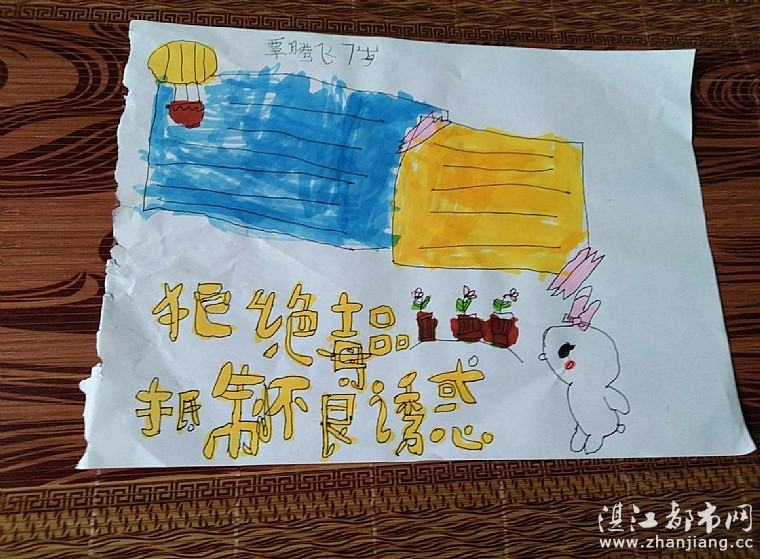 覃腾飞7岁
拒绝毒品
抵制不良诱惑
湛江都市网
www.zhanjiang.cc